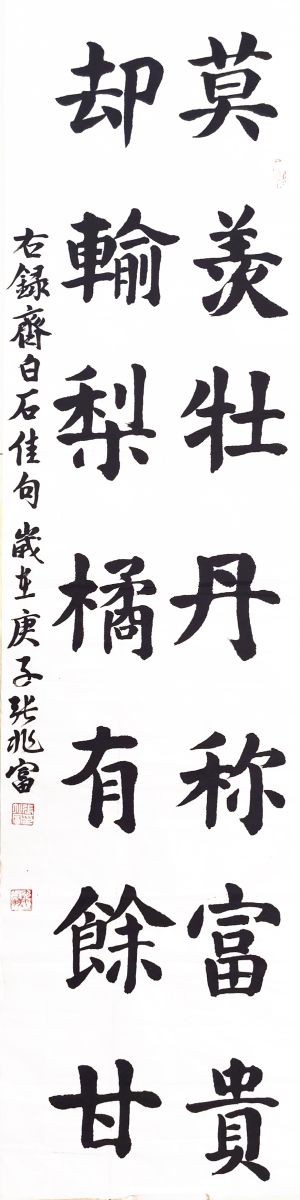 莫羨牡丹称富貴
却輸梨橘有餘甘
右録齊白石佳句歲在庚子張兆富